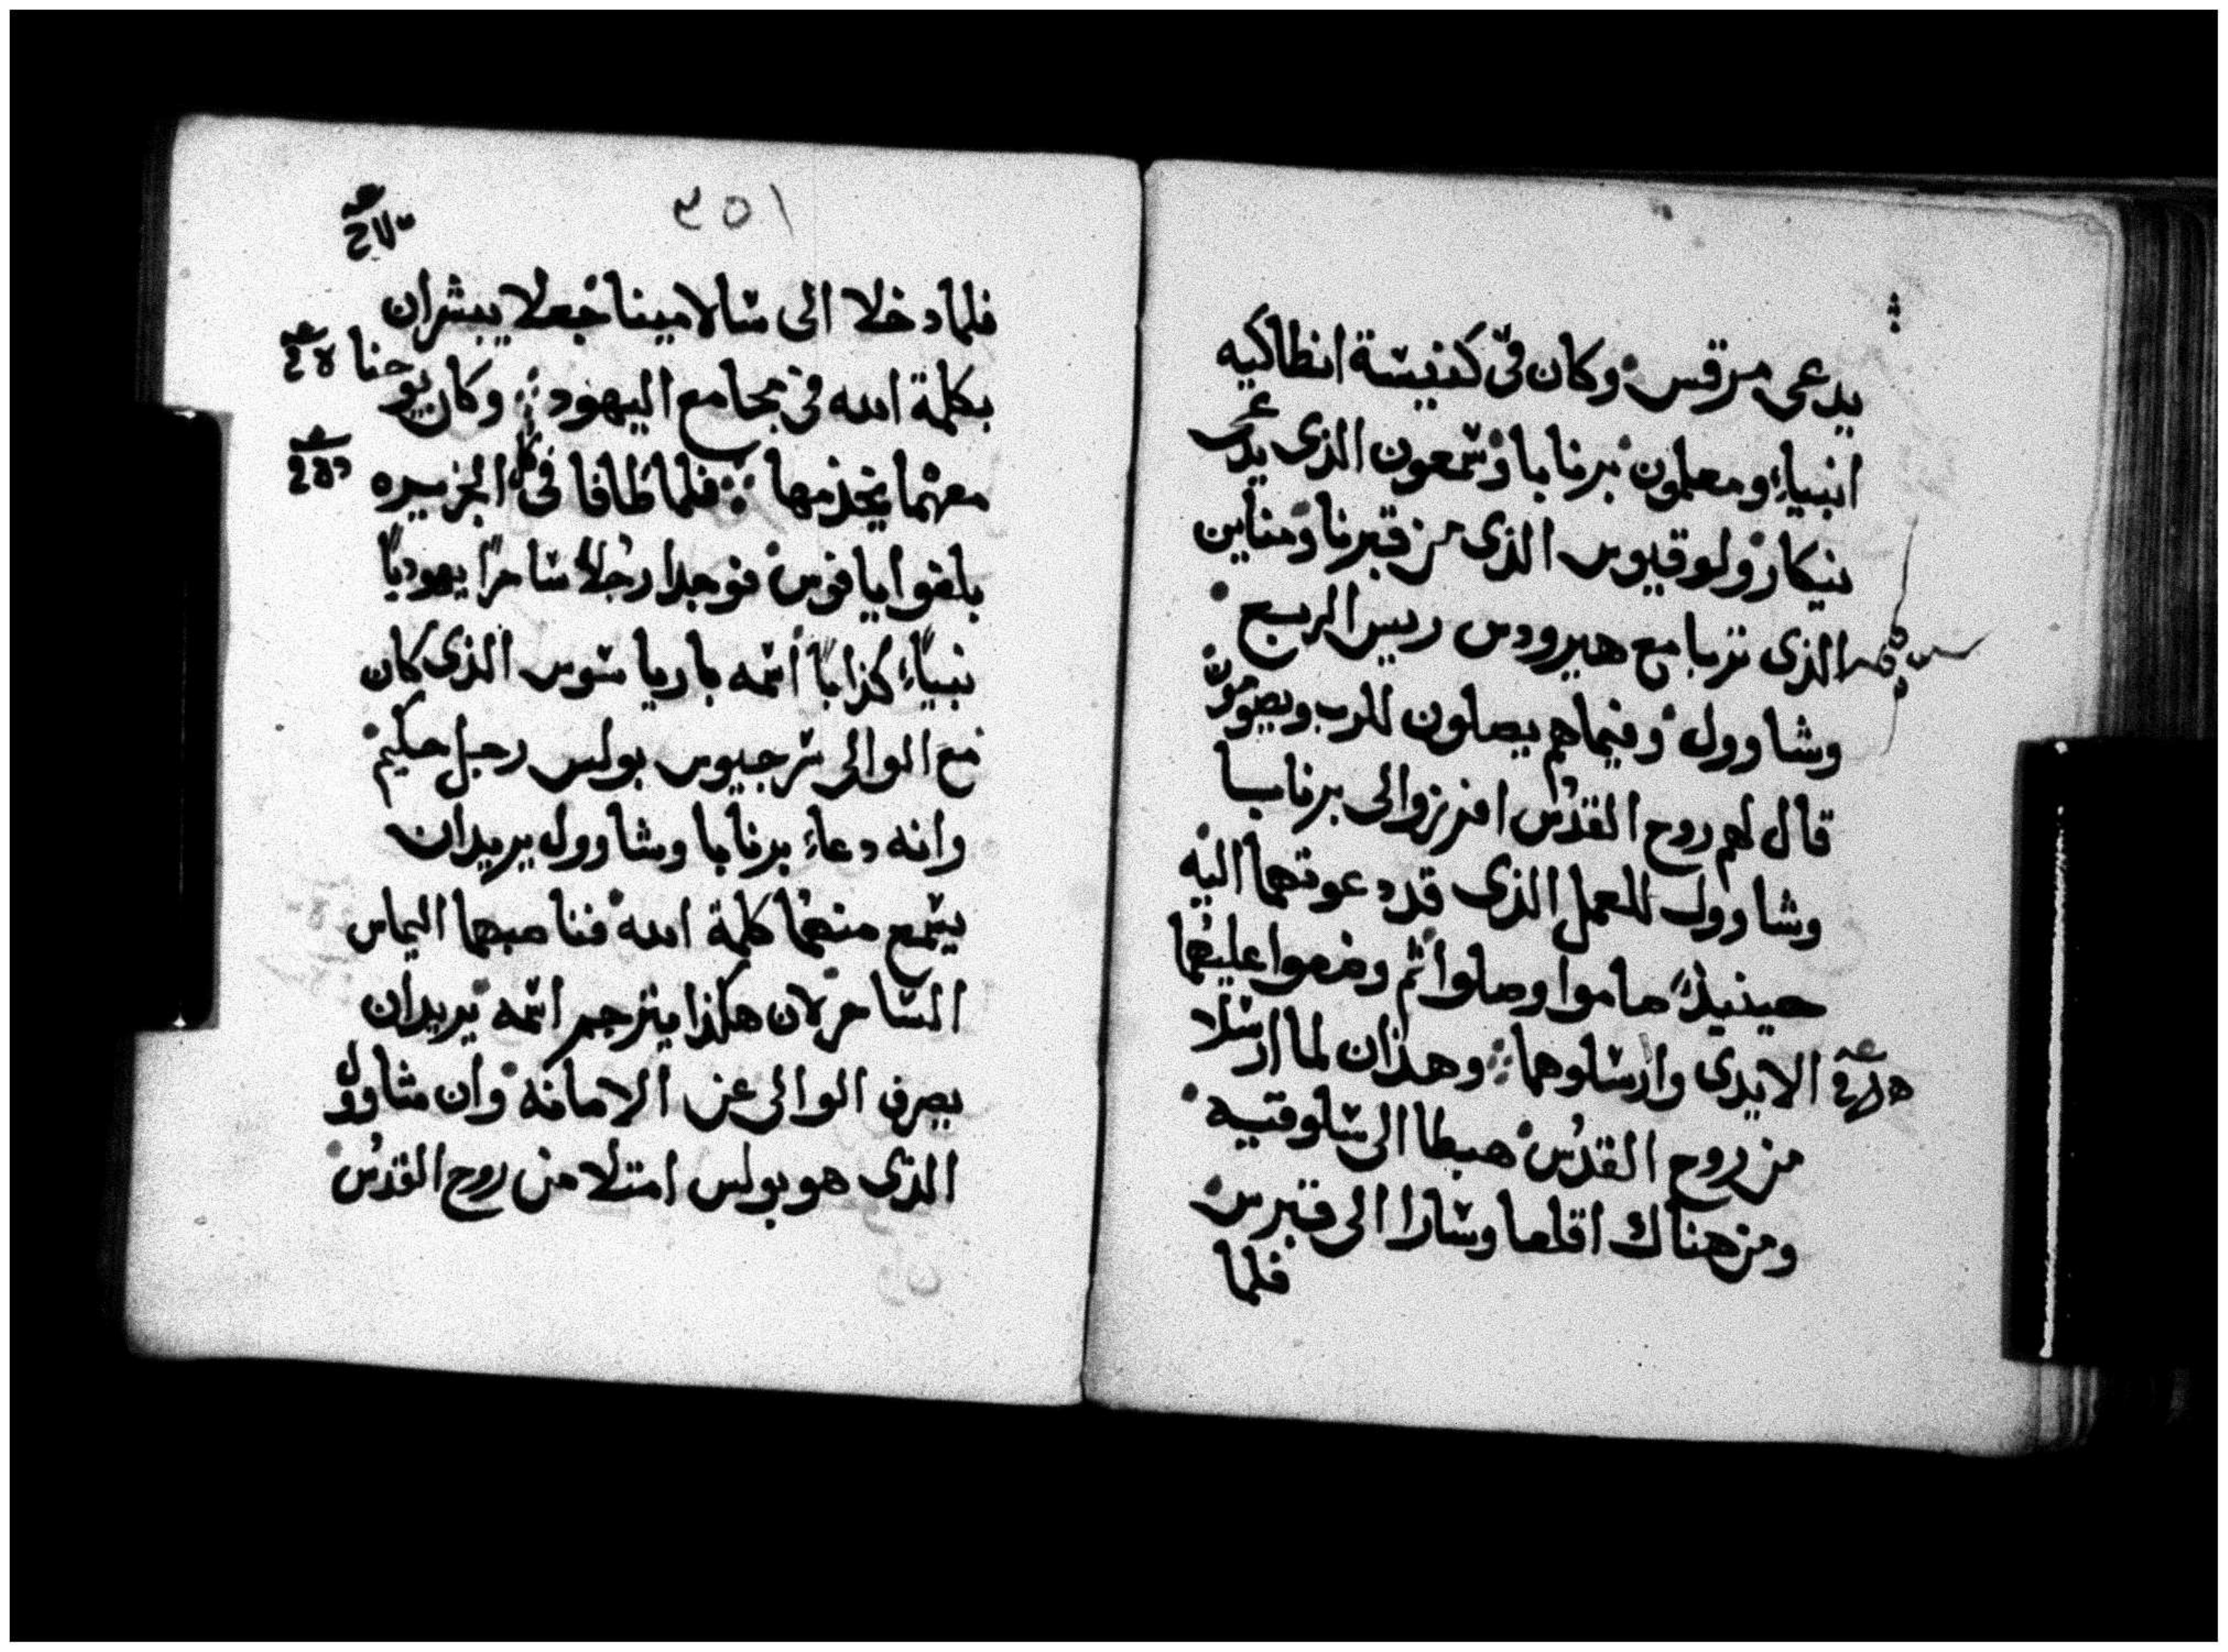 يدعى مرقس وكان في كنيسة انطاكيه
انبياء ومعلمون برنابا وشمعون الذى يدعى
نيكار ولوقيوس الذى من قبرنا ومناين
الذى تربا مع هيرودس رييس الربع
وشاوول وفيماهم يصلون للرب ويصومون
قال لهم روح القدس افرزوا لى برنابا
وشاوول للعمل الذى قد دعوتهما اليه
حينيذ صاموا وصلوا ثم وضعوا عليهما
الايدى وارسلوهما وهذان لما ارسلا
من روح القدس هبطا الى سلوقيه
ومن هناك اقلعا وسارا الى قبرس
فلما
فلما دخلا الى سالامينا جعلا يبشران
بكلمة الله في مجامع اليهود وكان يوحنا
معهما يخدمها فلما طافا في كل الجزيره
بلغوا يافوس فوجدا رجلاً ساحرًا يهوديًا
نبياء كذابًا اسمه باريا سوس الذى كان
مع الوالى سرجيوس بولس رجل حكيم
وانه دعاء برنابا وشاوول يريد ان
يسمع منهما كلمة الله فناصبهما اليماس
الساحر لان هكذا يترجم اسمه يريد ان
يصرف الوالى عن الامانه وان شاوول
الذى هو بولس امتلا من روح القدس